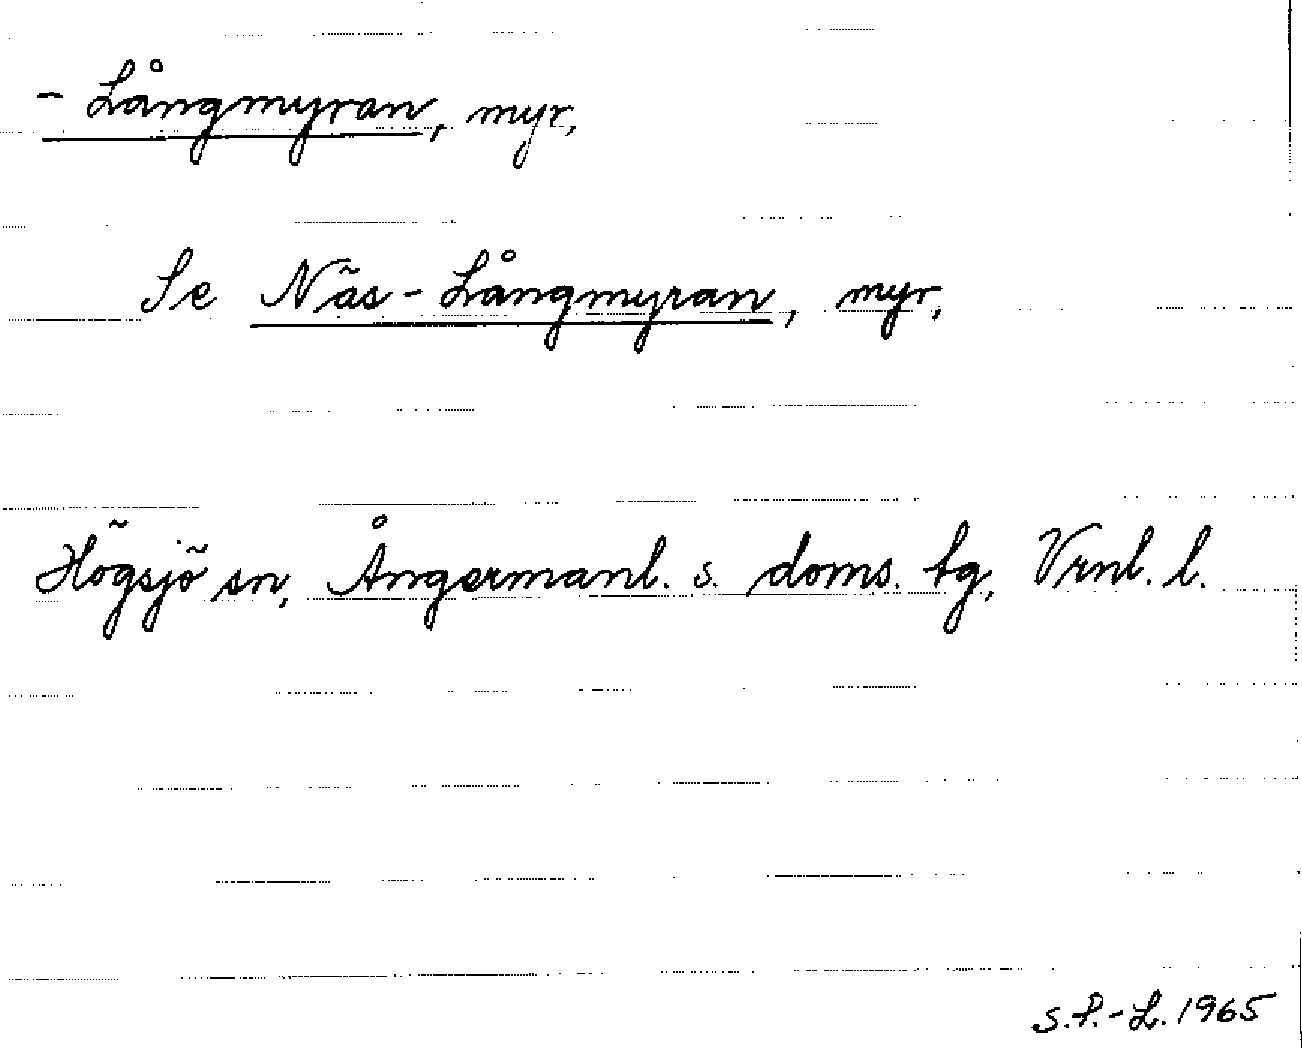 - Långmyran, myr,
Se Näs-Långmyran, myr,
Högsjö sn, Ångermanl. s. doms. tg, Vrnl. l.
S.P.-L. 1965